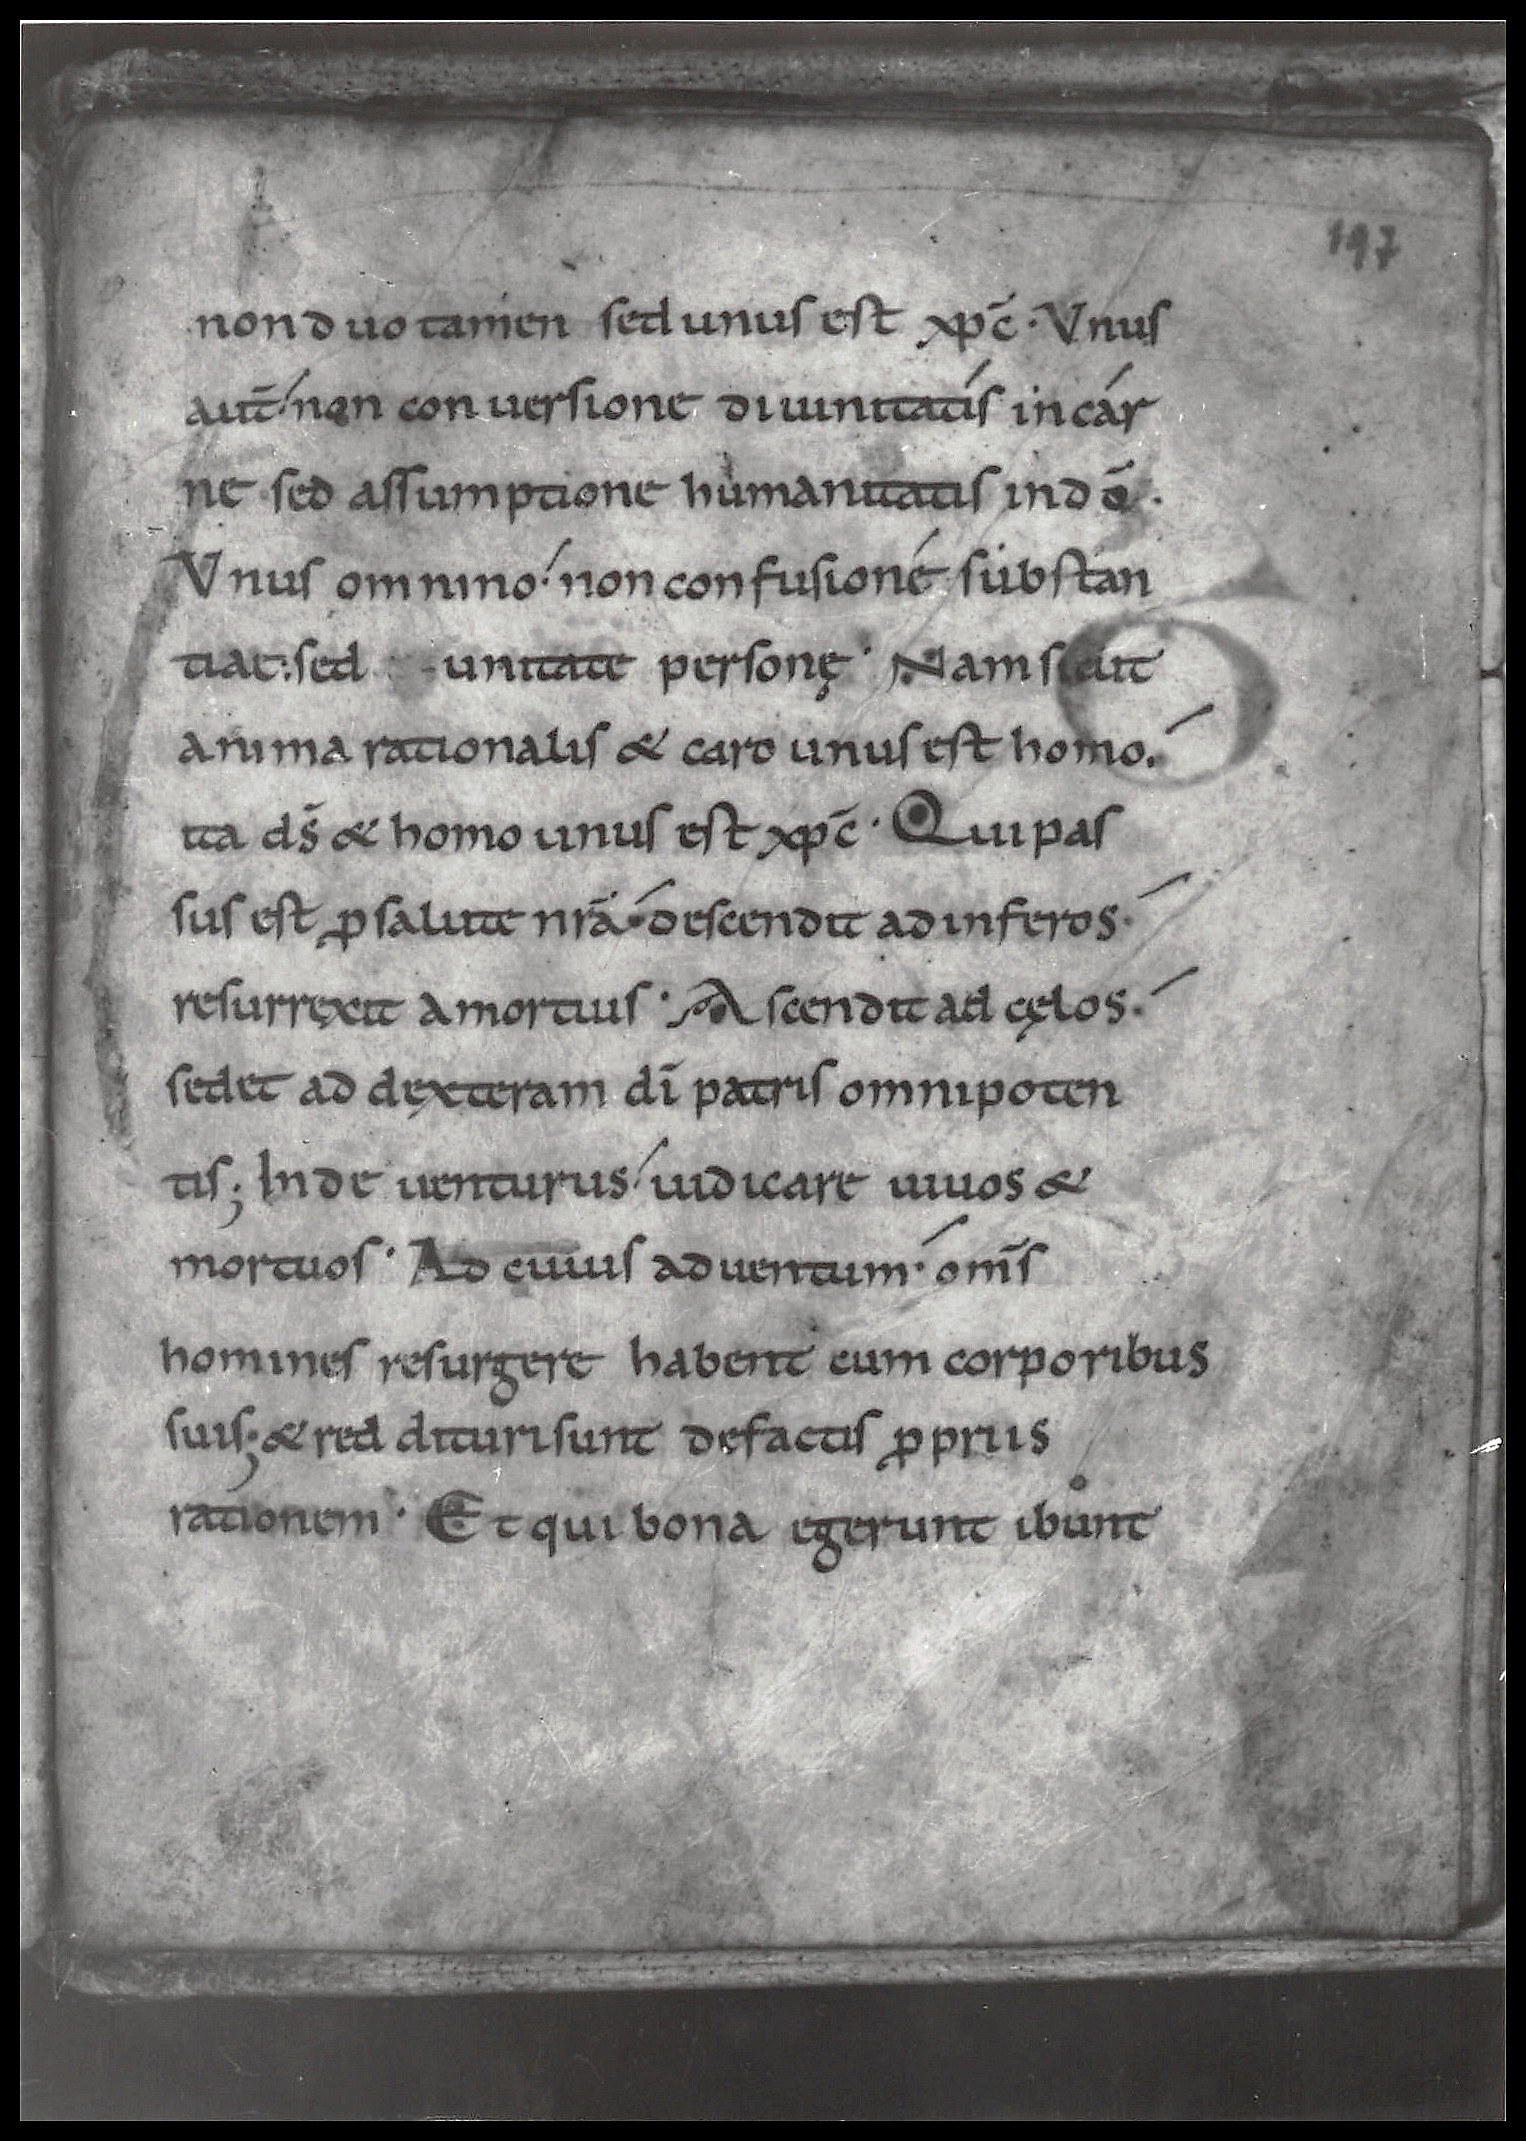 197
non duo tamen sed unus est xp̄c · Vnus
aut̄ non conuersione diuinitatis in car
ne sed assumptione humanitatis in dō .
Vnus omnino · non confusione substan
tiae : sed unitate personę · Nam sicut
anima rationalis & caro unus est homo .
ita ds̄ & homo unus est xp̄c · Qui pas
sus est ꝓ salute nr̄a · descendit ad inferos ·
resurrexit a mortuis · Ascendit ad cęlos ·
sedet ad dexteram dī patris omnipoten
tis ; Inde uenturus iudicare uiuos &
mortuos · Ad cuius aduentum · om̄s
homines resurgere habent cum corporibus
suis ; & reddituri sunt de factis ꝓpriis
rationem · Et qui bona egerunt ibunt